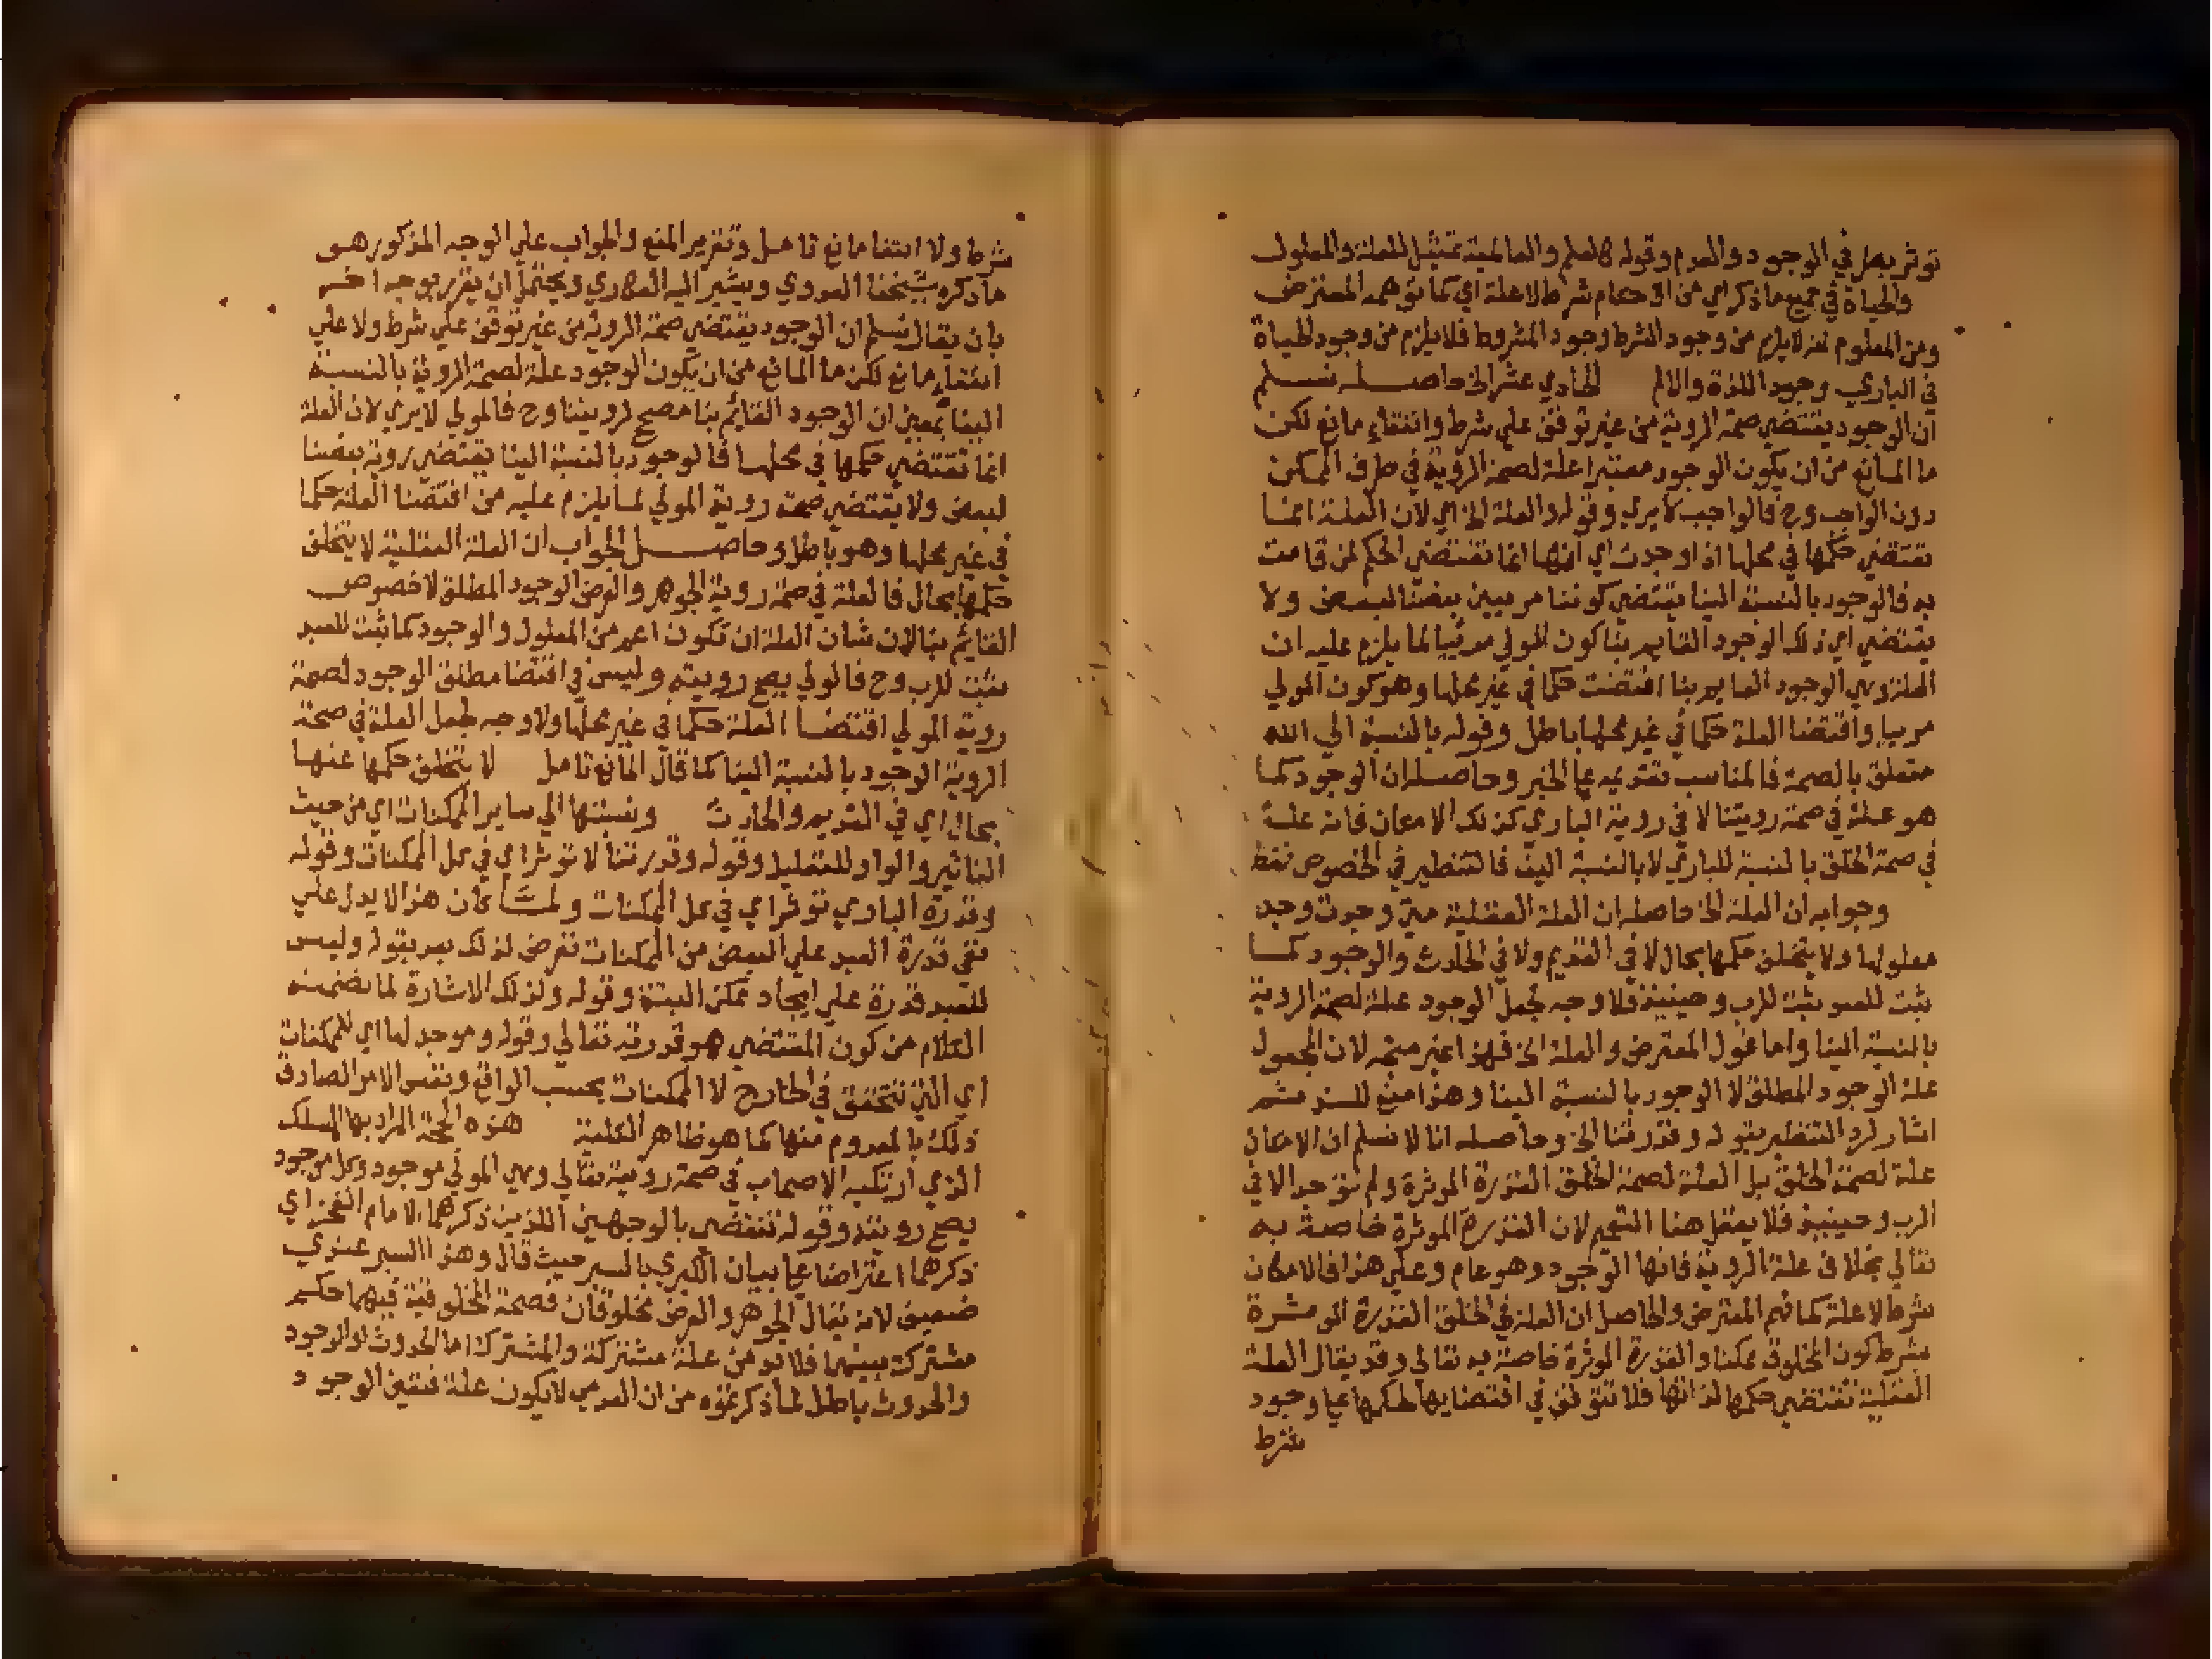 توثر بهل في الوجود والعدم وقوله كالعلم والعالمية تمثيل للعلة والمعلول
والحياة في جميع ما ذكر اي من الاحكام شرط لا علة اي كما توهمه المعترض
ومن المعلوم انه لا يلزم من وجود الشرط وجود المشروط فلا يلزم من وجود الحياة
في الباري وجود اللذة والالم الحادي عشر الخ حاصله نسلم
ان الوجود يقتضي صحة الروية من غير توقف علي شرط وانتفاء مانع لكن
ما المانع من ان يكون الوجود معتبرا علة لصحة الرؤية في طرف الممكن
دون الواجب وح فالواجب لا يري وقوله والعلة الخ اي لان العلة انما
تقتضي حكمها في محلها اذا وجدت اي انها انما تقتضي الحكم لمن قامت
به فالوجود بالنسبة الينا يقتضي كوننا مرييين بعضنا لبعض ولا
يقتضي اي ذلك الوجود القايم بنا كون المولي مرئيا لما يلزم عليه ان
العلة وهي الوجود القايم بنا اقتضت حكما في غير محلها وهو كون المولي
مرييا واقتضا العلة حكما في غير محلها باطل وقوله بالنسبة الي الله
متعلق بالصحة فالمناسب تقديمه علي الخبر وحاصله ان الوجود كما
هو علة في صحة رويتنا لا في روية الباري كذلك الامكان فانه علة
في صحة الخلق بالنسبة للباري لا بالنسبة الينا فالتنظير في الخصوص فقط
وجوابه ان العلة الخ حاصله ان العلة العقلية متي وجدت وجد
معلولها ولا يتخلف حكمها بحال لا في القديم ولا في الحادث والوجود كما
ثبت للعبد يثبت للرب وحينيذ فلا وجه لجعل الوجود علة لصحة الروية
بالنسبة الينا واما قول المعترض والعلة الخ فهذا غير متجه لان المجعول
علة الوجود المطلق لا الوجود بالنسبة الينا وهذا منع للسند ثم
اشار لرد التنظير بقوله وقدرتنا الخ وحاصله انا لا نسلم ان الامكان
علة لصحة الخلق بل العلة لصحة الخلق القدرة الموثرة ولم توجد الا في
الرب وحينيذ فلا يعقل هنا التعميم لان القدرة الموثرة خاصة به
تعالي بخلاف علة الروية فانها الوجود وهو عام وعلي هذا فالامكان
شرط لا علة كما فهم المعترض والحاصل ان العلة في الخلق القدرة الموثرة
بشرط كون المخلوق ممكنا والقدرة الموثرة خاصة به تعالي وقد يقال العلة
العقلية تقتضي حكمها لذاتها فلا تتوقف في اقتضايها لحكمها علي وجود
شرط
شرط ولا انتفا مانع تامل وتقرير المنع والجواب علي الوجه المذكور هو
ما ذكره شيخنا العدوي ويشير اليه الفهري ويحتمل ان يقرر بوجه اخر
بان يقال نسلم ان الوجود يقتضي صحة الروية من غير توقف علي شرط ولا علي
انتفاء مانع لكن ما المانع من ان يكون الوجود علة لصحة الروية بالنسبة
الينا بمعني ان الوجود القائم بنا مصحح لرويتنا وح فالمولي لا يري لان العلة
انما تقتضي حكمها في محلها فالوجود بالنسبة الينا يقتضي روية بعضنا
لبعض ولا يقتضي صحة روية المولي لما يلزم عليه من اقتضا العلة حكما
في غير محلها وهو باطل وحاصل الجواب ان العلة العقلية لا يتخلف
حكمها بحال فالعلة في صحة روية الجوهر والعرض الوجود المطلق لا خصوص
القائم بنا لان شان العلة ان تكون اعم من المعلول والوجود كما ثبت للعبد
يثبت للرب وح فالمولي يصح رويته وليس في اقتضا مطلق الوجود لصحة
روية المولي اقتضا العلة حكما في غير محلها ولا وجه لجعل العلة في صحة
الروية الوجود بالنسبة الينا كما قال المانع تامل لا يتخلف حكمها عنها
بحال اي في القديم والحادث ونسبتها الي ساير الممكنات اي من حيث
التاثير والواو للتعليل وقوله وقدرتنا لا توثر اي في كل الممكنات وقوله
وقدرة الباري توثر اي في كل الممكنات ولما كان هذا لا يدل علي
نفي قدرة العبد علي البعض من الممكنات تعرض لذلك بعد بقوله وليس
للعبد قدرة علي ايجاد ممكن البتة وقوله ولذلك الاشارة لما تضمنه
الكلام من كون المقتضي هو قدرته تعالي وقوله وموجد لها اي للممكنات
اي التي تتحقق في الخارج لا الممكنات بحسب الواقع ونفس الامر الصادق
ذلك بالمعدوم منها كما هو ظاهر الكلية هذه الحجة المراد بها المسلك
الذي ارتكبه الاصحاب في صحة رويته تعالي وهي المولي موجود وكل موجود
يصح رويته وقوله تنتقض بالوجهين اللذين ذكرهما الامام الفخر اي
ذكرهما اعتراضا علي بيان الكبري بالسبر حيث قال وهذا السبر عندي
ضعيف لانه يقال الجوهر والعرض مخلوقان فصحة المخلوقية فيهما حكم
مشترك بينهما فلا بد من علة مشتركة والمشترك اما الحدوث او الوجود
والحدوث باطل لما ذكرتموه من ان العدمي لا يكون علة فتعين الوجود